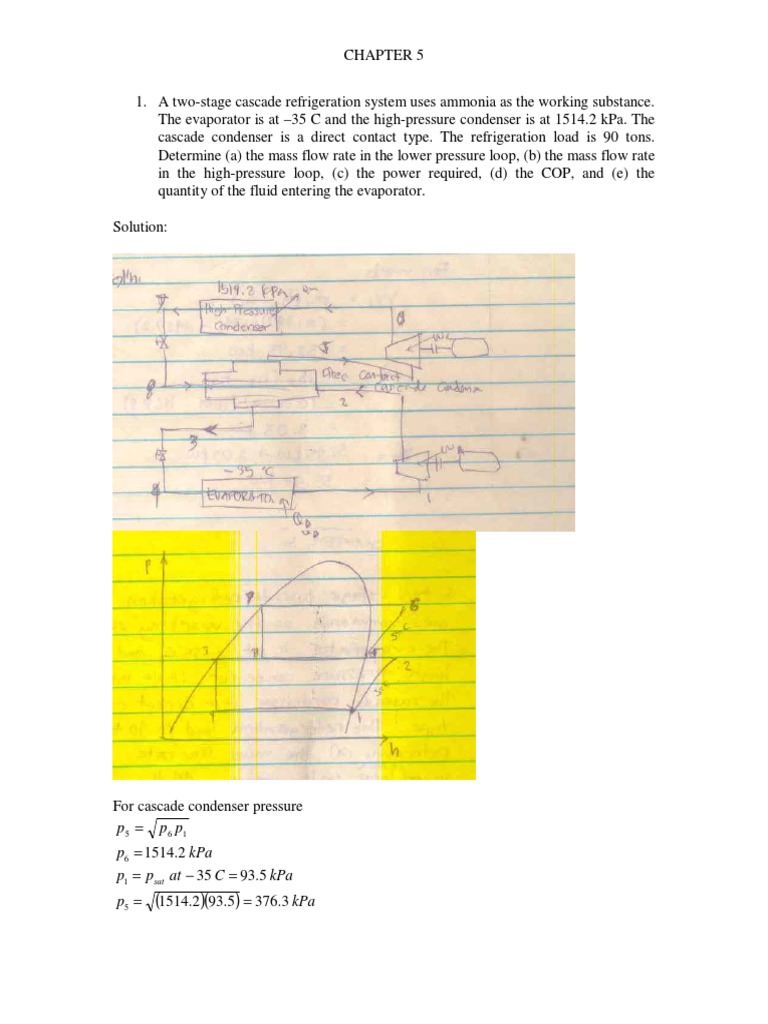 CHAPTER 5
1. A two-stage cascade refrigeration system uses ammonia as the working substance.
The evaporator is at –35 C and the high-pressure condenser is at 1514.2 kPa. The
cascade condenser is a direct contact type. The refrigeration load is 90 tons.
Determine (a) the mass flow rate in the lower pressure loop, (b) the mass flow rate
in the high-pressure loop, (c) the power required, (d) the COP, and (e) the
quantity of the fluid entering the evaporator.
Solution:
1514.2 kPa
7
High Pressure
Condenser
6
5
Direc Contact
Cascade Condens
8
2
3
-35 °C
4
EVAPORATOR
1
P
7
6
S=C
3
8
5
2
S=C
4
1
h
For cascade condenser pressure
p₅ = √p₆p₁
p₆ = 1514.2 kPa
p₁ = p_sat at – 35 C = 93.5 kPa
p₅ = √(1514.2)(93.5) = 376.3 kPa